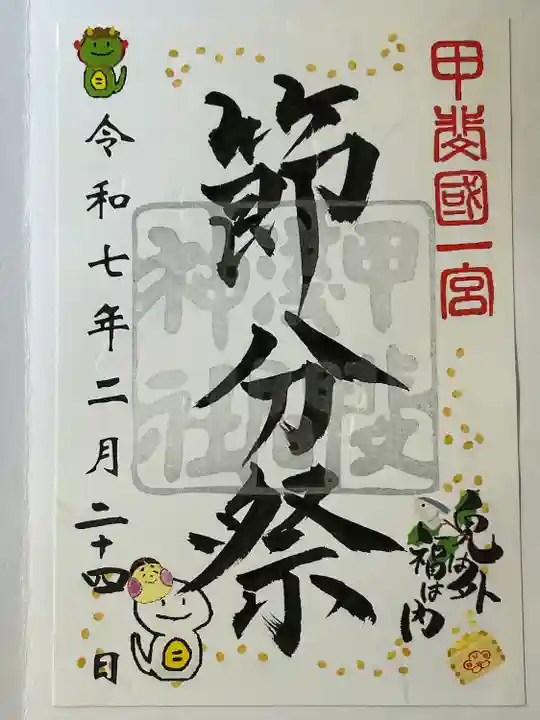 甲斐國一宮
節分祭
甲斐國
浅間神社
鬼は外
福は内
令和七年二月二十四日